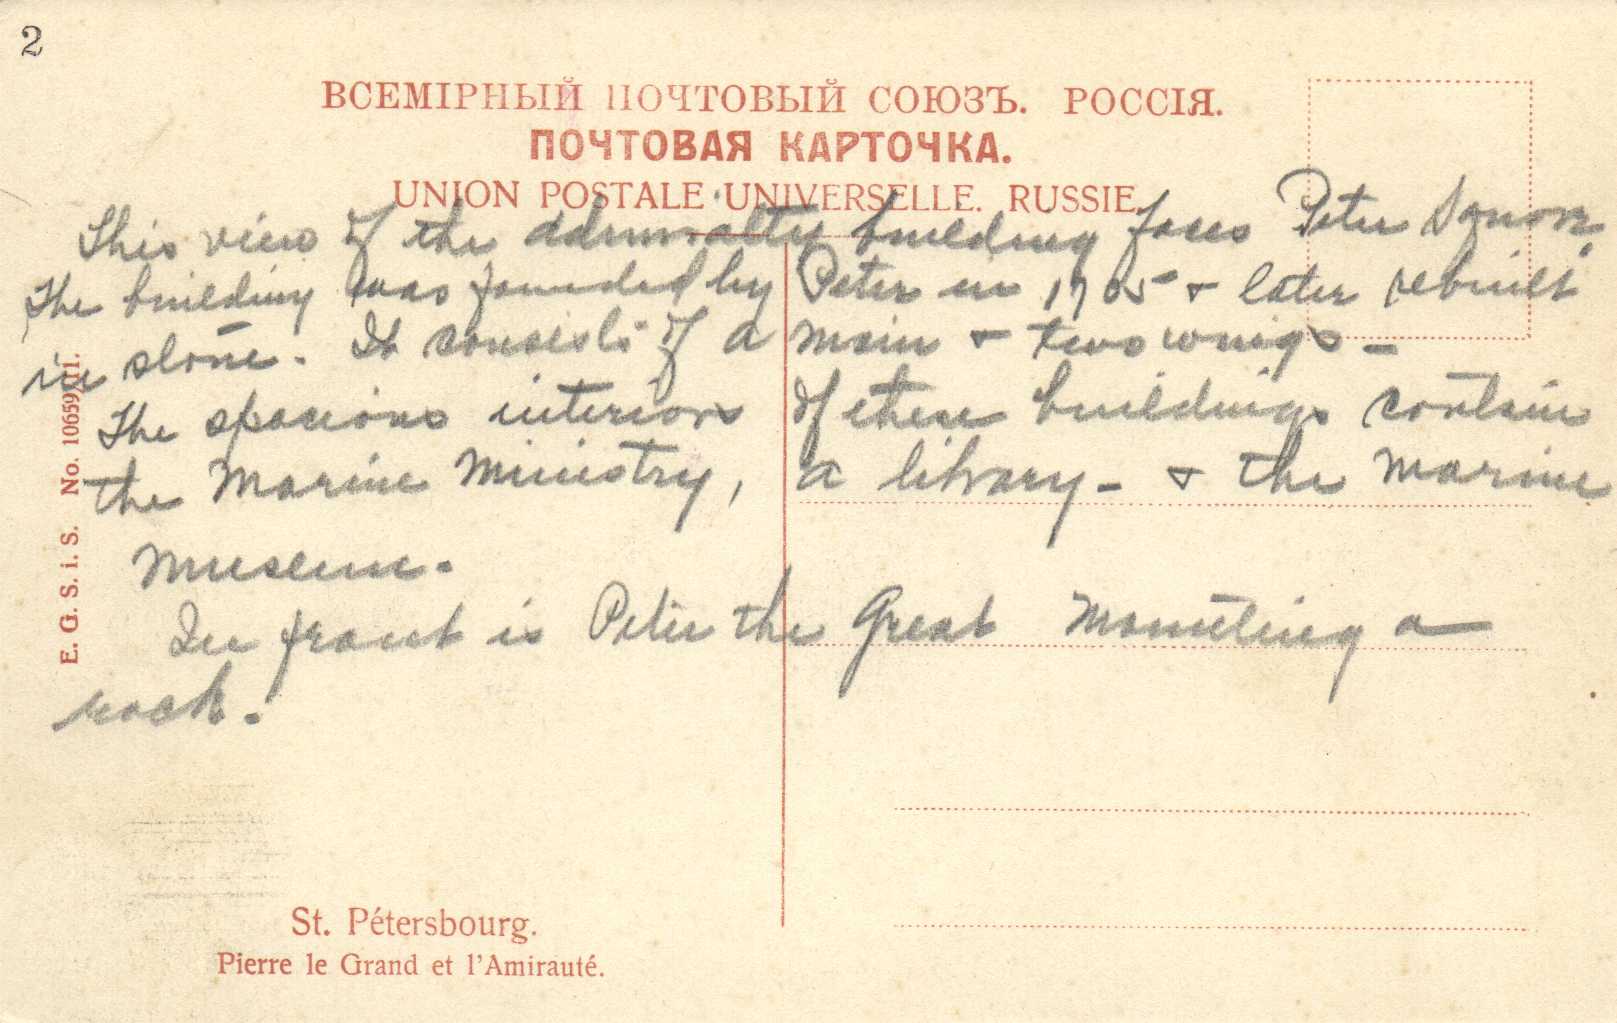 2
ВСЕМІРНЫЙ ПОЧТОВЫЙ СОЮЗЪ. РОССІЯ.
ПОЧТОВАЯ КАРТОЧКА.
UNION POSTALE UNIVERSELLE. RUSSIE.
This view of the admiralty building faces Peter Square.
The building was founded by Peter in 1705 + later rebuilt
in stone. It consists of a main + two wings -
The spacious interiors of these buildings contain
the Marine Ministry, a library - + the Marine
Museum.
In front is Peter the Great Mounting a
rock.
E. G. S. i. S. No. 10659/11.
St. Pétersbourg.
Pierre le Grand et l'Amirauté.